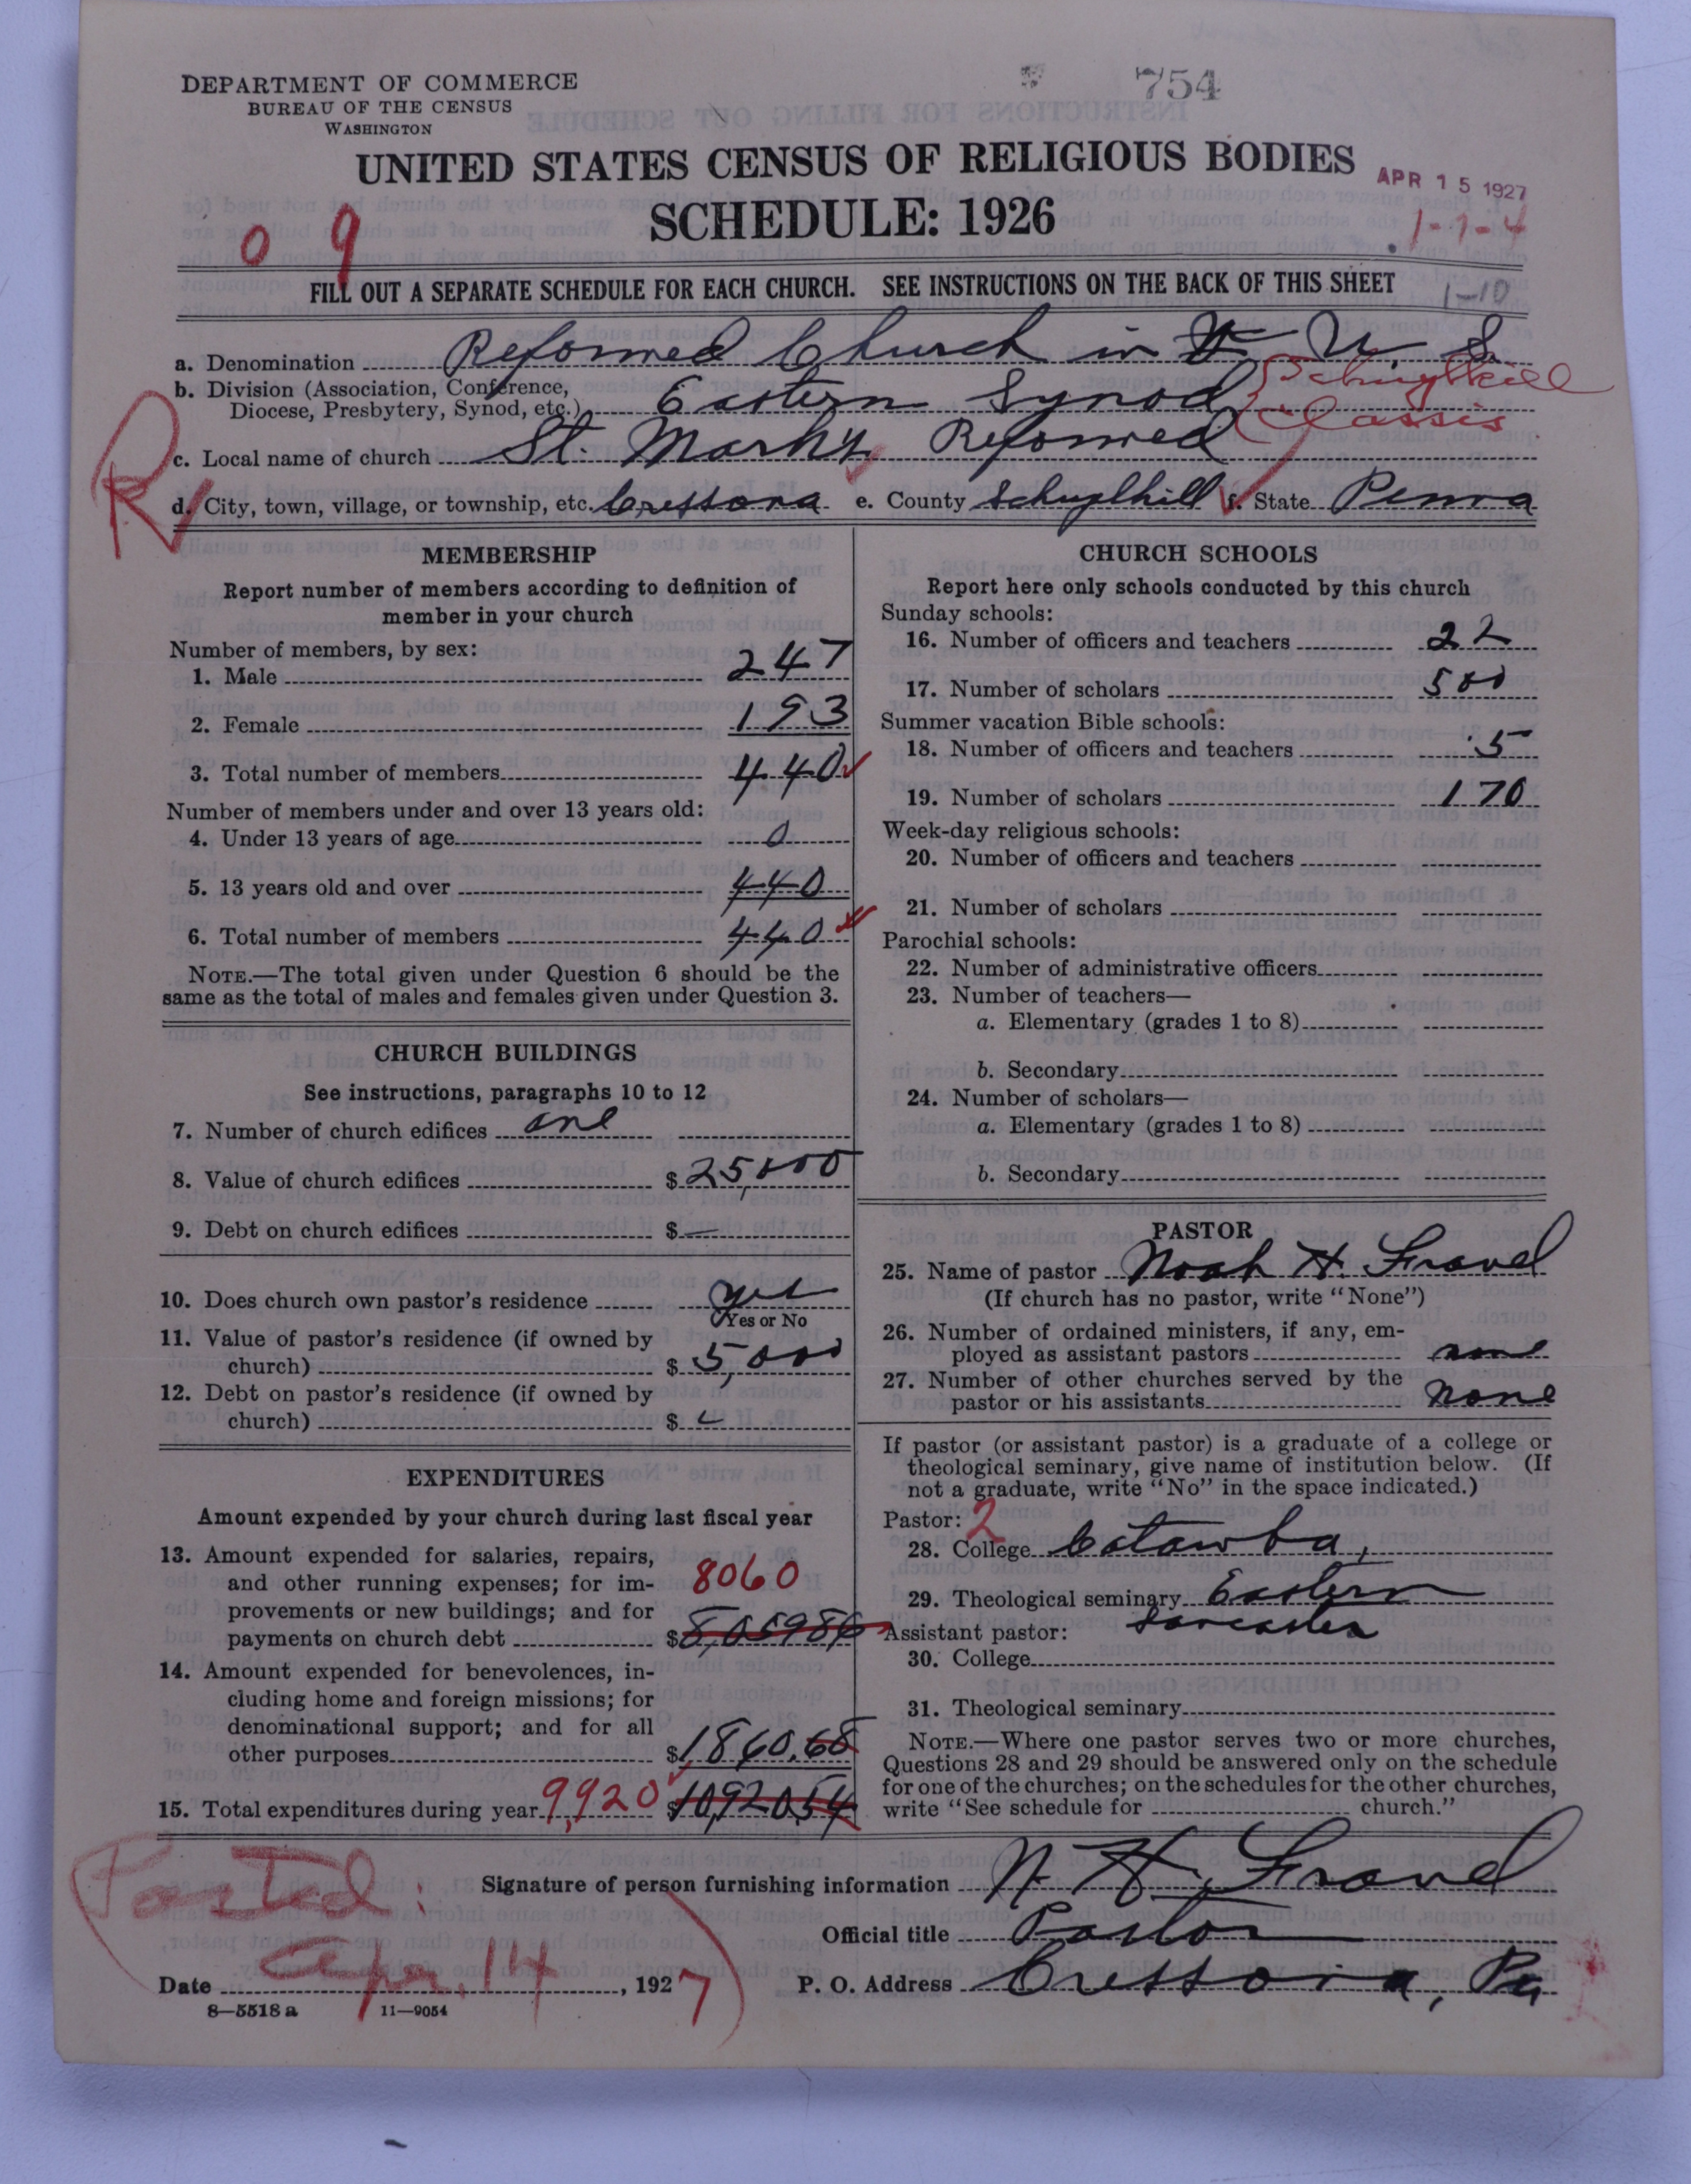 DEPARTMENT OF COMMERCE
BUREAU OF THE CENSUS
WASHINGTON
754
UNITED STATES CENSUS OF RELIGIOUS BODIES
APR 15 1927
SCHEDULE: 1926
0 9
1-1-4
FILL OUT A SEPARATE SCHEDULE FOR EACH CHURCH. SEE INSTRUCTIONS ON THE BACK OF THIS SHEET
1-10
a. Denomination Reformed Church in U. S.
b. Division (Association, Conference, Diocese, Presbytery, Synod, etc.) Eastern Synod
Schuylkill Classis
R
c. Local name of church St. Marks Reformed
d. City, town, village, or township, etc. Cressona e. County Schuylkill f. State Penna
MEMBERSHIP
Report number of members according to definition of
member in your church
Number of members, by sex:
1. Male 247
2. Female 193
3. Total number of members 440
Number of members under and over 13 years old:
4. Under 13 years of age 0
5. 13 years old and over 440
6. Total number of members 440
NOTE.—The total given under Question 6 should be the
same as the total of males and females given under Question 3.
CHURCH BUILDINGS
See instructions, paragraphs 10 to 12
7. Number of church edifices one
8. Value of church edifices $25,000
9. Debt on church edifices $ —
10. Does church own pastor's residence yes
Yes or No
11. Value of pastor's residence (if owned by
church) $5,000
12. Debt on pastor's residence (if owned by
church) $
EXPENDITURES
Amount expended by your church during last fiscal year
13. Amount expended for salaries, repairs,
and other running expenses; for im- 8060
provements or new buildings; and for
payments on church debt $8,05986
14. Amount expended for benevolences, in-
cluding home and foreign missions; for
denominational support; and for all
other purposes $1,860.68
15. Total expenditures during year 9,920 $10,92054
CHURCH SCHOOLS
Report here only schools conducted by this church
Sunday schools:
16. Number of officers and teachers 22
17. Number of scholars 500
Summer vacation Bible schools:
18. Number of officers and teachers 5
19. Number of scholars 170
Week-day religious schools:
20. Number of officers and teachers
21. Number of scholars
Parochial schools:
22. Number of administrative officers
23. Number of teachers—
a. Elementary (grades 1 to 8)
b. Secondary
24. Number of scholars—
a. Elementary (grades 1 to 8)
b. Secondary
PASTOR
25. Name of pastor Noah H. Fravel
(If church has no pastor, write "None")
26. Number of ordained ministers, if any, em-
ployed as assistant pastors none
27. Number of other churches served by the
pastor or his assistants none
If pastor (or assistant pastor) is a graduate of a college or
theological seminary, give name of institution below. (If
not a graduate, write "No" in the space indicated.)
Pastor: 2
28. College Catawba,
29. Theological seminary Eastern
Assistant pastor: Lancaster
30. College
31. Theological seminary
NOTE.—Where one pastor serves two or more churches,
Questions 28 and 29 should be answered only on the schedule
for one of the churches; on the schedules for the other churches,
write "See schedule for church."
Signature of person furnishing information N. H. Fravel
Official title Pastor
Posted:
Date Apr. 14, 1927
P. O. Address Cressona, Pa
8—5518 a 11—9054